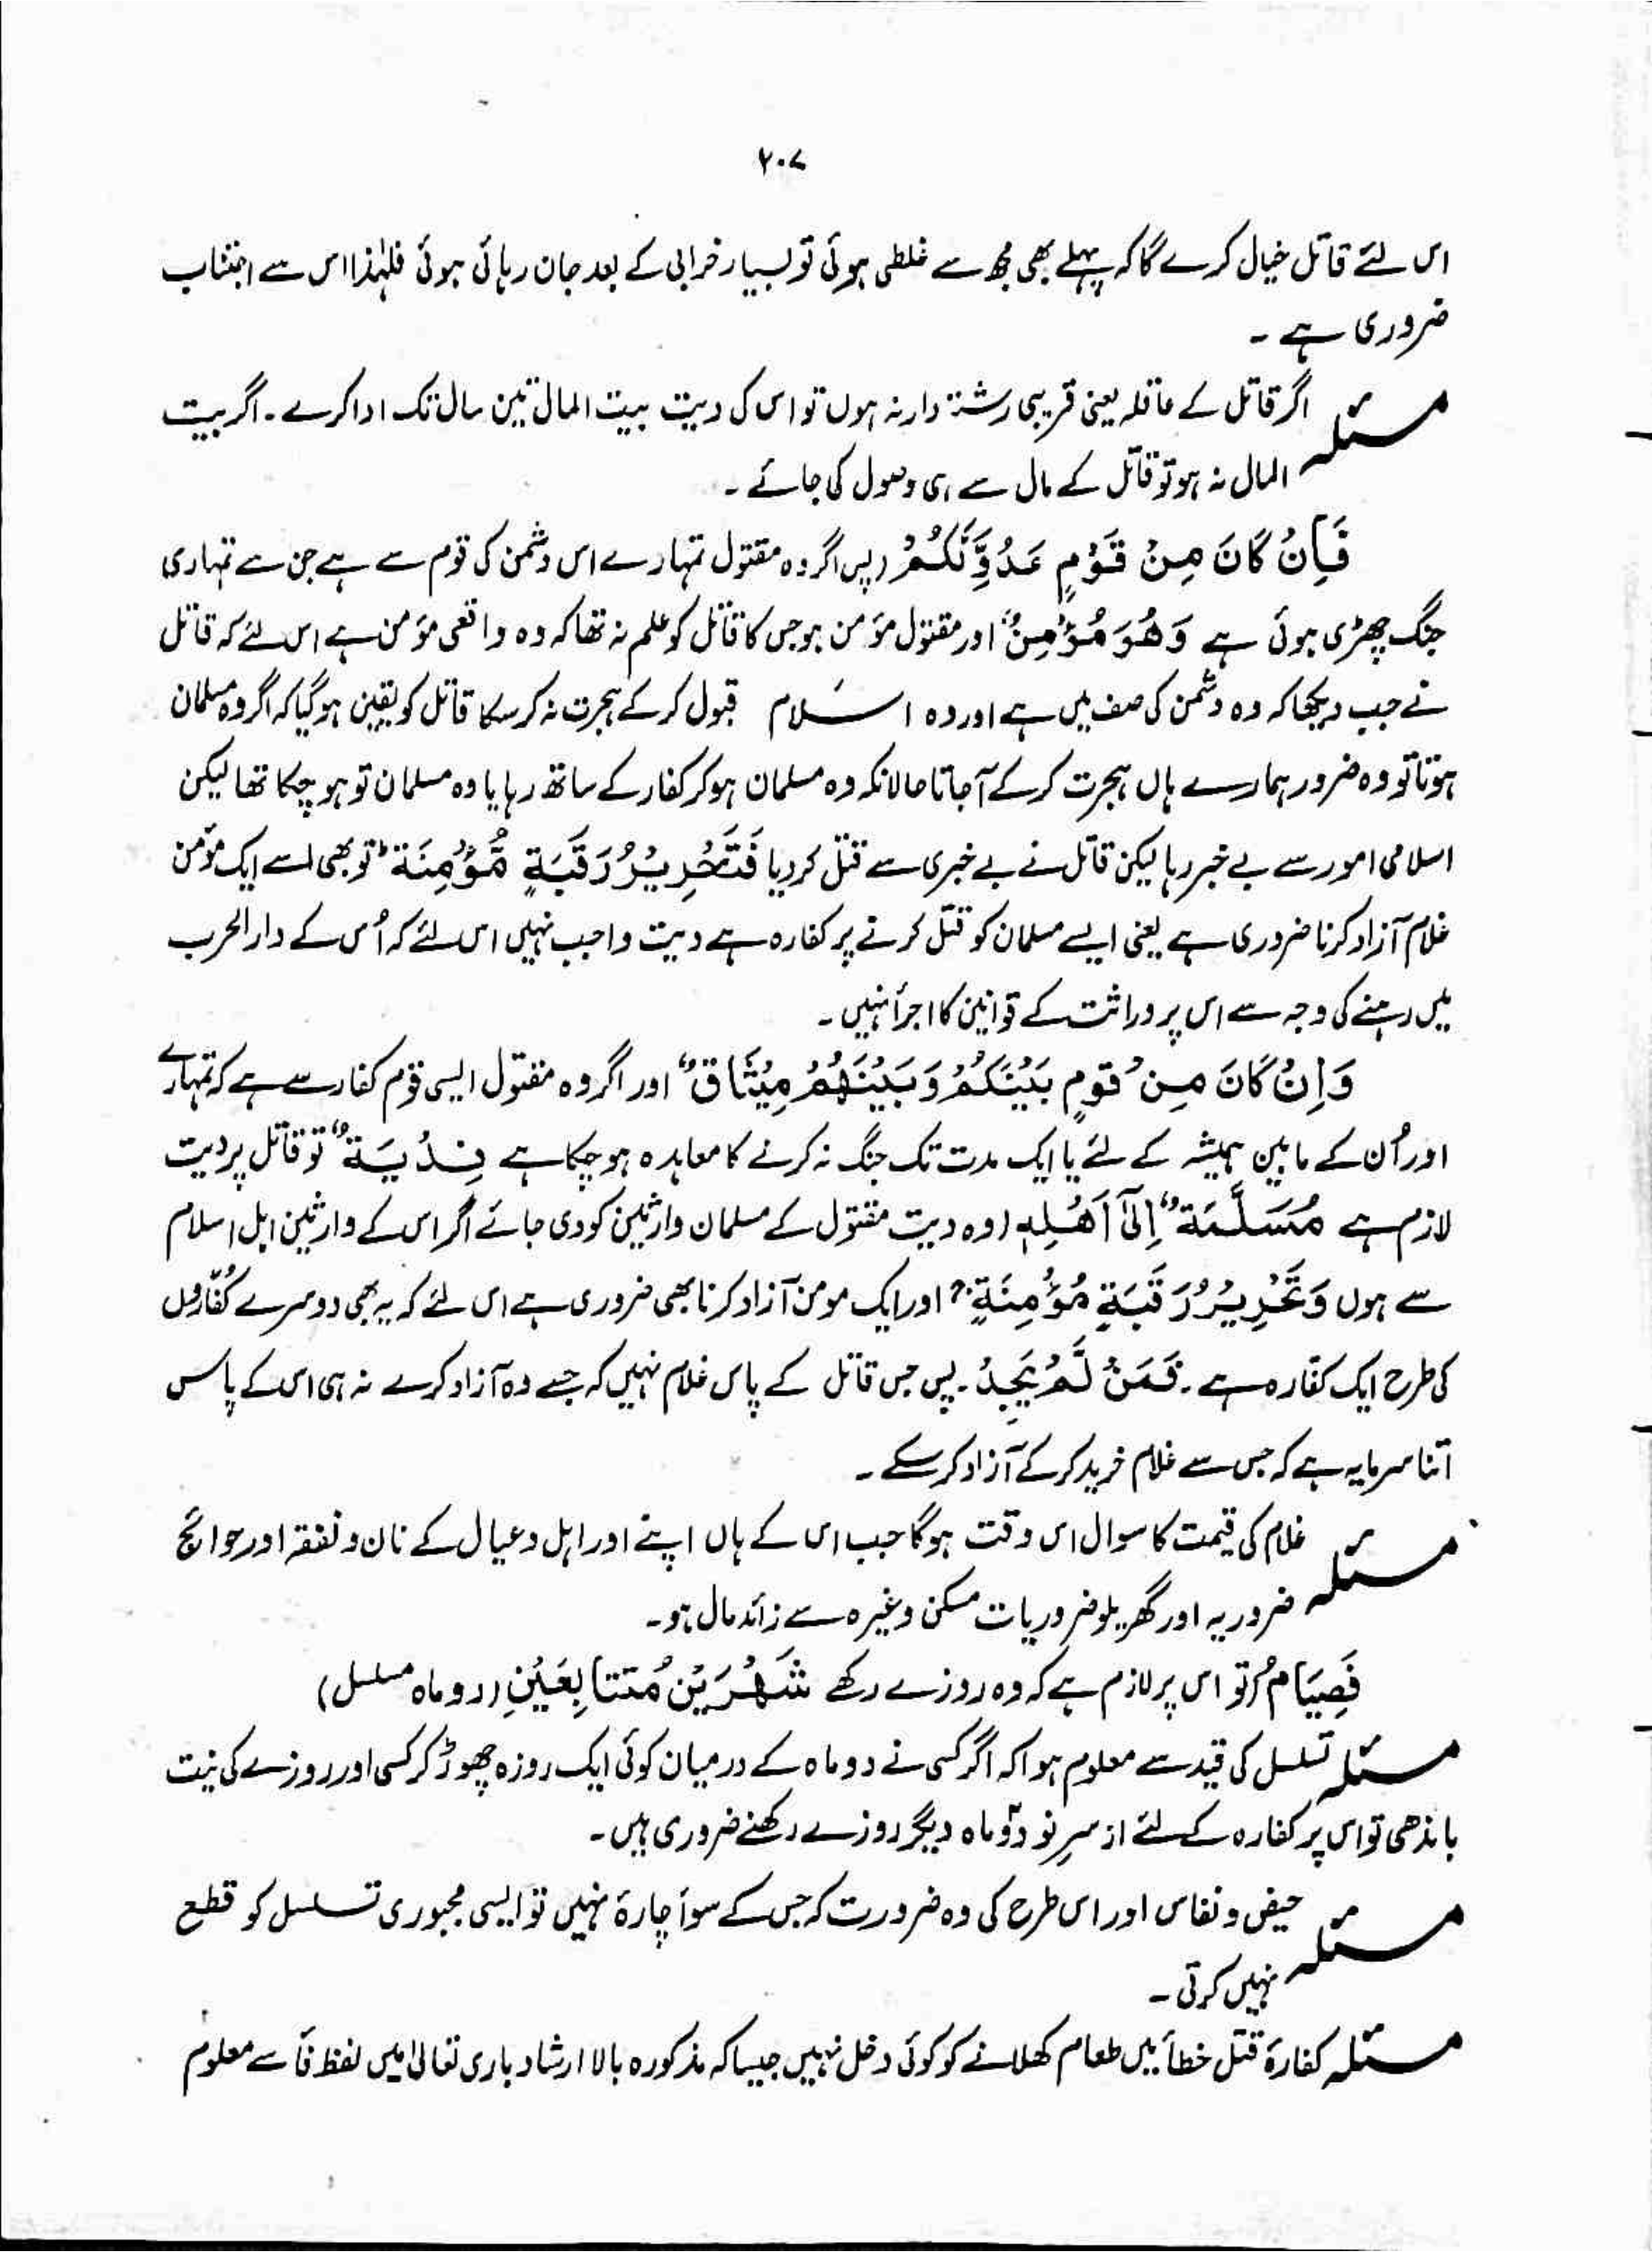 ۲۰۷
اس لئے قاتل خیال کرے گا کہ پہلے بھی مجھ سے غلطی ہوئی تو بسیار خرابی کے بعد جان رہائی ہوئی فلہٰذا اس سے اجتناب
ضروری ہے ۔
مسئلہ اگر قاتل کے عاقلہ یعنی قریبی رشتہ دار نہ ہوں تو اس کی دیت بیت المال تین سال تک ادا کرے ۔ اگر بیت
المال نہ ہو تو قاتل کے مال سے ہی وصول کی جائے ۔
فَاِنْ كَانَ مِنْ قَوْمٍ عَدُوٍّ لَّكُمْ (پس اگر وہ مقتول تمہارے اس دشمن کی قوم سے ہے جن سے تمہاری
جنگ چھڑی ہوئی ہے وَهُوَ مُؤْمِنٌ اور مقتول مؤمن ہو جس کا قاتل کو علم نہ تھا کہ وہ واقعی مؤمن ہے اس لئے کہ قاتل
نے جب دیکھا کہ وہ دشمن کی صف میں ہے اور وہ اسلام قبول کر کے ہجرت نہ کر سکا قاتل کو یقین ہو گیا کہ اگر وہ مسلمان
ہوتا تو وہ ضرور ہمارے ہاں ہجرت کر کے آ جاتا حالانکہ وہ مسلمان ہو کر کفار کے ساتھ رہا یا وہ مسلمان تو ہو چکا تھا لیکن
اسلامی امور سے بے خبر رہا لیکن قاتل نے بے خبری سے قتل کر دیا فَتَحْرِيْرُ رَقَبَةٍ مُّؤْمِنَة ط تو بھی اسے ایک مؤمن
غلام آزاد کرنا ضروری ہے یعنی ایسے مسلمان کو قتل کرنے پر کفارہ ہے دیت واجب نہیں اس لئے کہ اُس کے دار الحرب
میں رہنے کی وجہ سے اس پر وراثت کے قوانین کا اجرأ نہیں ۔
وَاِنْ كَانَ مِنْ قَومٍ بَيْنَكُمْ وَبَيْنَهُمْ مِيْثَاقٌ اور اگر وہ مقتول ایسی قوم کفار سے ہے کہ تمہارے
اور اُن کے مابین ہمیشہ کے لئے یا ایک مدت تک جنگ نہ کرنے کا معاہدہ ہو چکا ہے فِدْيَةٌ تو قاتل پر دیت
لازم ہے مُسَلَّمَةٌ اِلٰٓى اَهْلِهٖ (وہ دیت مقتول کے مسلمان وارثین کو دی جائے اگر اس کے وارثین اہل اسلام
سے ہوں وَتَحْرِيْرُ رَقَبَةٍ مُؤْمِنَةٍ ج اور ایک مومن آزاد کرنا بھی ضروری ہے اس لئے کہ یہ بھی دوسرے کُفّاروں
کی طرح ایک کفّارہ ہے ۔ فَمَنْ لَّمْ يَجِدْ ۔ پس جس قاتل کے پاس غلام نہیں کہ جسے وہ آزاد کرے نہ ہی اس کے پاس
اتنا سرمایہ ہے کہ جس سے غلام خرید کر کے آزاد کر سکے ۔
مسئلہ غلام کی قیمت کا سوال اس وقت ہوگا جب اس کے ہاں اپنے اور اہل و عیال کے نان و نفقہ اور حوائج
ضروریہ اور گھریلو ضروریات مسکن وغیرہ سے زائد مال ہو ۔
فَصِيَامُ تو اس پر لازم ہے کہ وہ روزے رکھے شَهْرَيْنِ مُتَتَابِعَيْنِ (دو ماہ مسلسل)
مسئلہ تسلسل کی قید سے معلوم ہوا کہ اگر کسی نے دو ماہ کے درمیان کوئی ایک روزہ چھوڑ کر کسی اور روزے کی نیت
باندھی تو اس پر کفارہ کے لئے از سرِ نو دوٗ ماہ دیگر روزے رکھنے ضروری ہیں ۔
مسئلہ حیض و نفاس اور اس طرح کی وہ ضرورت کہ جس کے سوأ چارۂ نہیں تو ایسی مجبوری تسلسل کو قطع
نہیں کرتی ۔
مسئلہ کفارۂ قتل خطأ میں طعام کھلانے کو کوئی دخل نہیں جیسا کہ مذکورہ بالا ارشاد باری تعالیٰ میں لفظ فأ سے معلوم